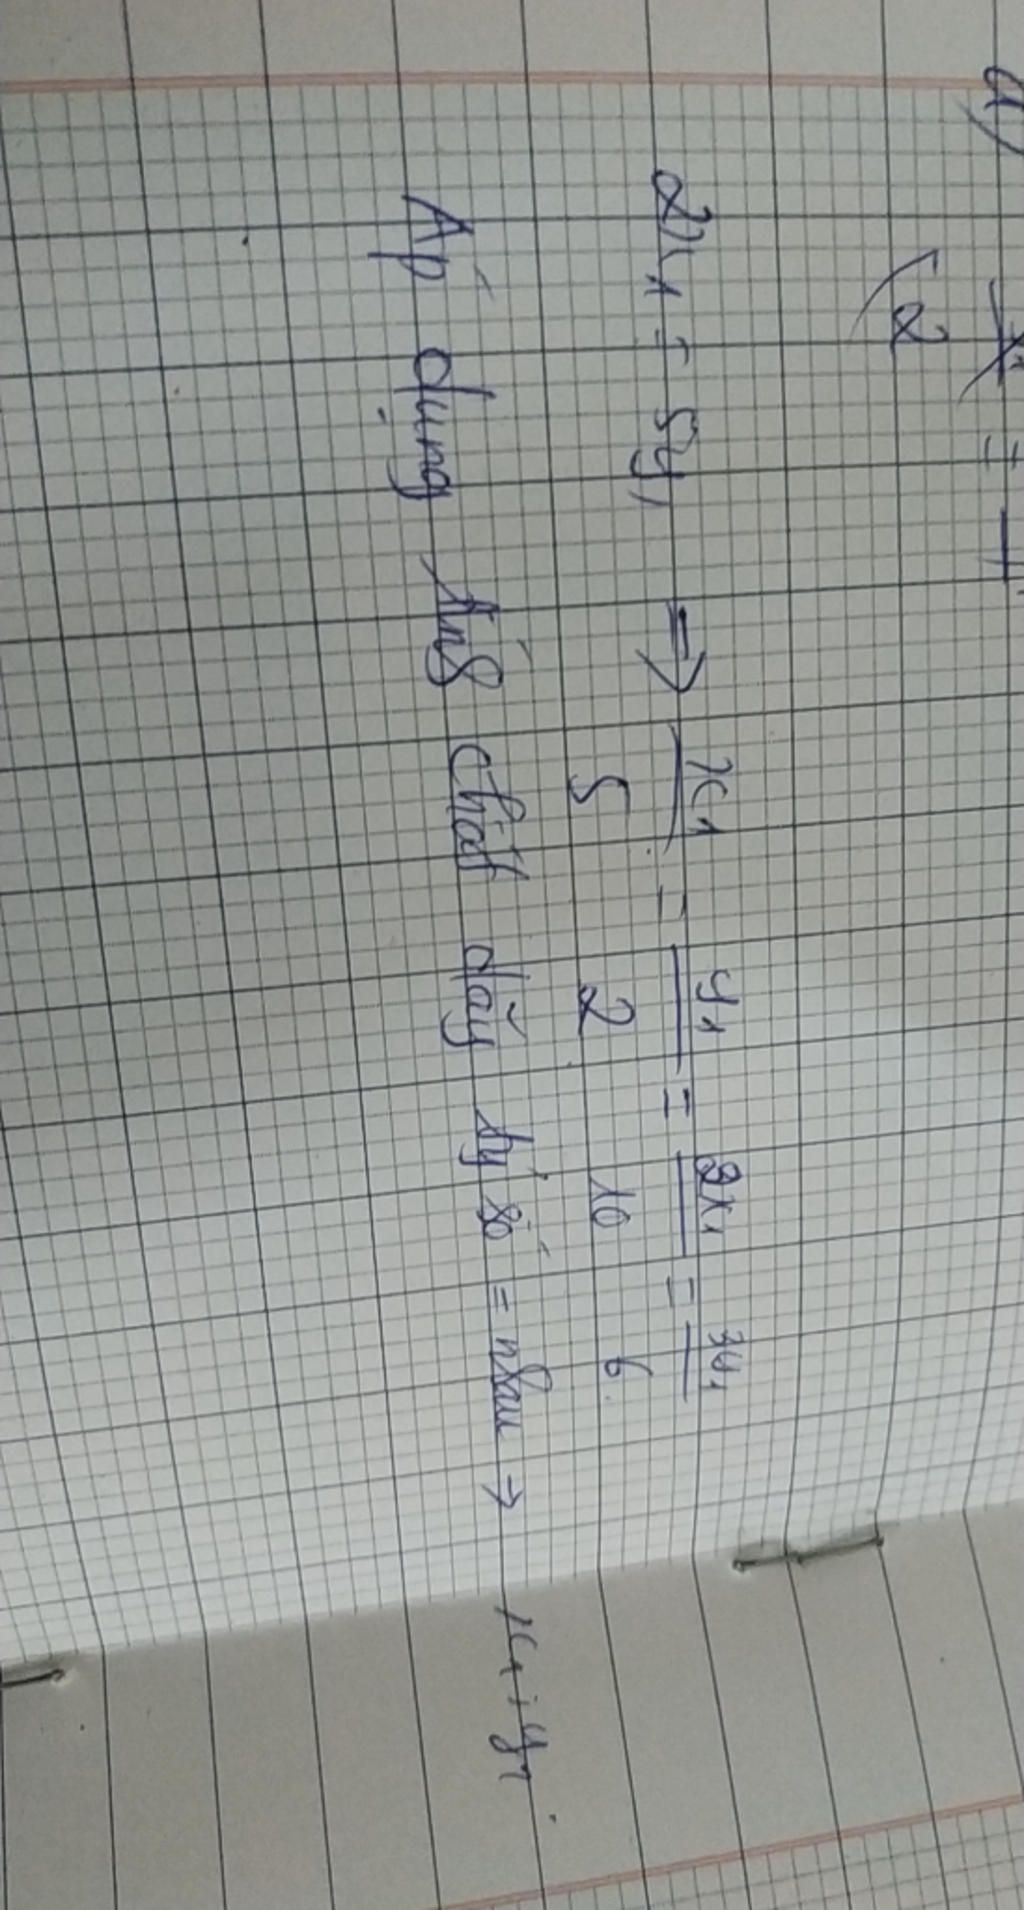 a)
2x₁ = 5y₁ ⇒ x₁/5 = y₁/2 = 2x₁/10 = 3y₁/6
Áp dụng tính chất dãy tỷ số = nhau → x₁, y₁